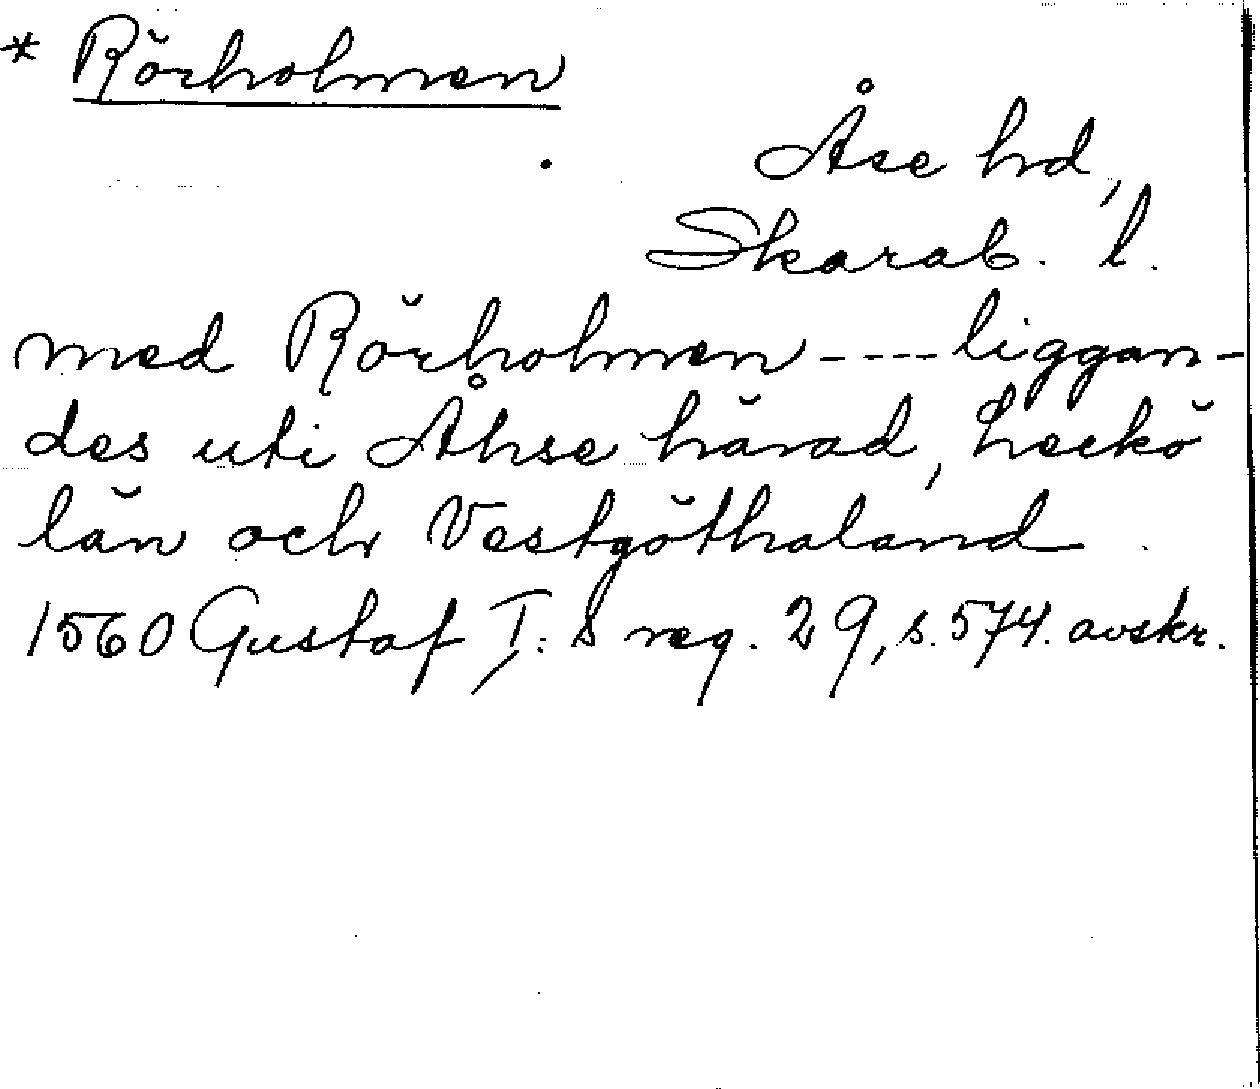 * Rörholmen
Åse hd,
Skarab. l.
med Rörholmen ---- liggan-
des uti Åhse härad, Leckö
län och Vestgöthaland.
1560 Gustaf I:s reg. 29, s. 574. avskr.